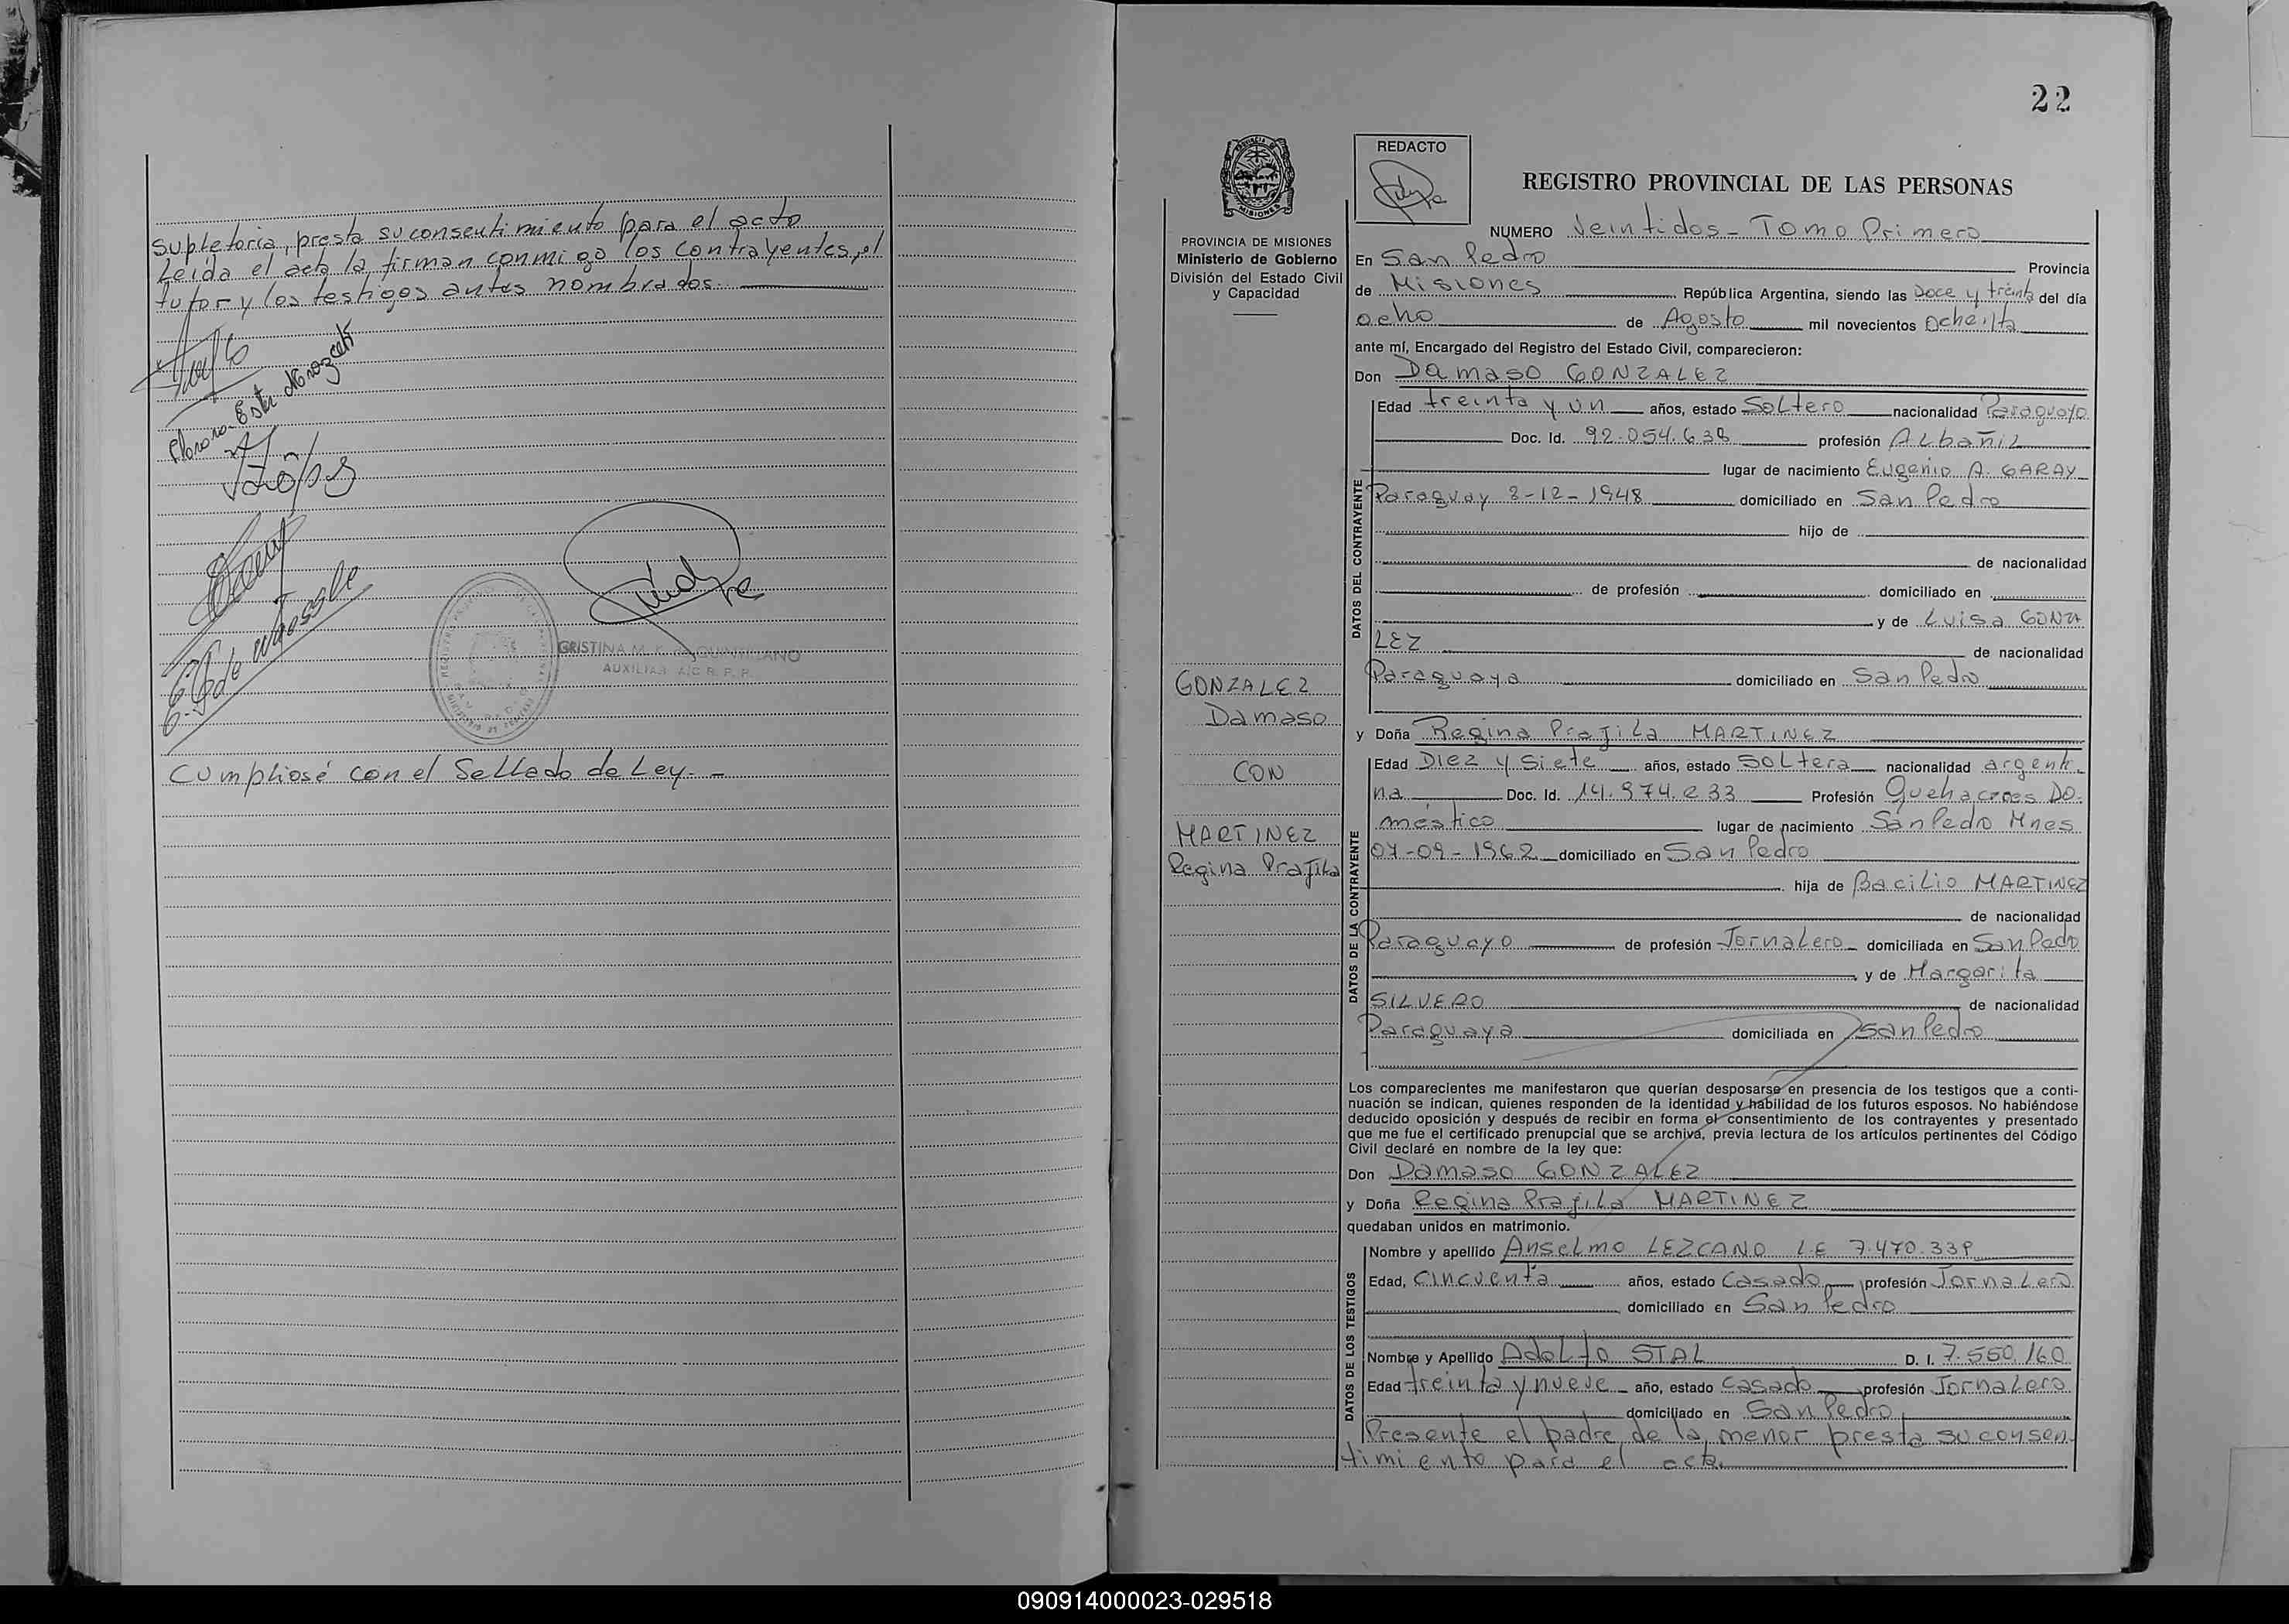 supletoria, presta su consentimiento para el acto
Leída el acta la firman conmigo los contrayentes, el
tutor y los testigos antes nombrados.
CRISTINA M. K.
AUXILIAR A/C R. P. P.
Cumpliosé con el Sellado de Ley. -
22
REDACTO
REGISTRO PROVINCIAL DE LAS PERSONAS
MISIONES
PROVINCIA DE MISIONES
Ministerio de Gobierno
División del Estado Civil
y Capacidad
NUMERO Veintidos - Tomo Primero
En San Pedro Provincia
de Misiones República Argentina, siendo las Doce y treinta del día
ocho de Agosto mil novecientos Ochenta
ante mí, Encargado del Registro del Estado Civil, comparecieron:
Don Damaso GONZALEZ
DATOS DEL CONTRAYENTE
Edad treinta y un años, estado Soltero nacionalidad Paraguayo
Doc. Id. 92.054.638 profesión Albañil
lugar de nacimiento Eugenio A. GARAY
Paraguay 8-12-1948 domiciliado en San Pedro
hijo de
de nacionalidad
de profesión domiciliado en
y de Luisa GONZA
LEZ de nacionalidad
Paraguaya domiciliado en San Pedro
GONZALEZ
Damaso
CON
MARTINEZ
Regina Prajila
y Doña Regina Prajila MARTINEZ
DATOS DE LA CONTRAYENTE
Edad Diez y Siete años, estado Soltera nacionalidad argenti
na Doc. Id. 14.974.233 Profesión Quehaceres Do-
méstico lugar de nacimiento San Pedro Mnes
07-09-1962 domiciliado en San Pedro
hija de Bacilio MARTINEZ
de nacionalidad
Paraguayo de profesión Jornalero domiciliada en San Pedro
y de Margarita
SILVERO de nacionalidad
Paraguaya domiciliada en San Pedro
Los comparecientes me manifestaron que querían desposarse en presencia de los testigos que a conti-
nuación se indican, quienes responden de la identidad y habilidad de los futuros esposos. No habiéndose
deducido oposición y después de recibir en forma el consentimiento de los contrayentes y presentado
que me fue el certificado prenupcial que se archiva, previa lectura de los artículos pertinentes del Código
Civil declaré en nombre de la ley que:
Don Damaso GONZALEZ
y Doña Regina Prajila MARTINEZ
quedaban unidos en matrimonio.
DATOS DE LOS TESTIGOS
Nombre y apellido Anselmo LEZCANO L.E 7.470.339
Edad, Cincuenta años, estado Casado profesión Jornalero
domiciliado en San Pedro
Nombre y Apellido Adolfo STAL D. I. 7.550.160
Edad treinta y nueve año, estado Casado profesión Jornalero
domiciliado en San Pedro
Presente el padre de la menor presta su consen
timiento para el acta
090914000023-029518